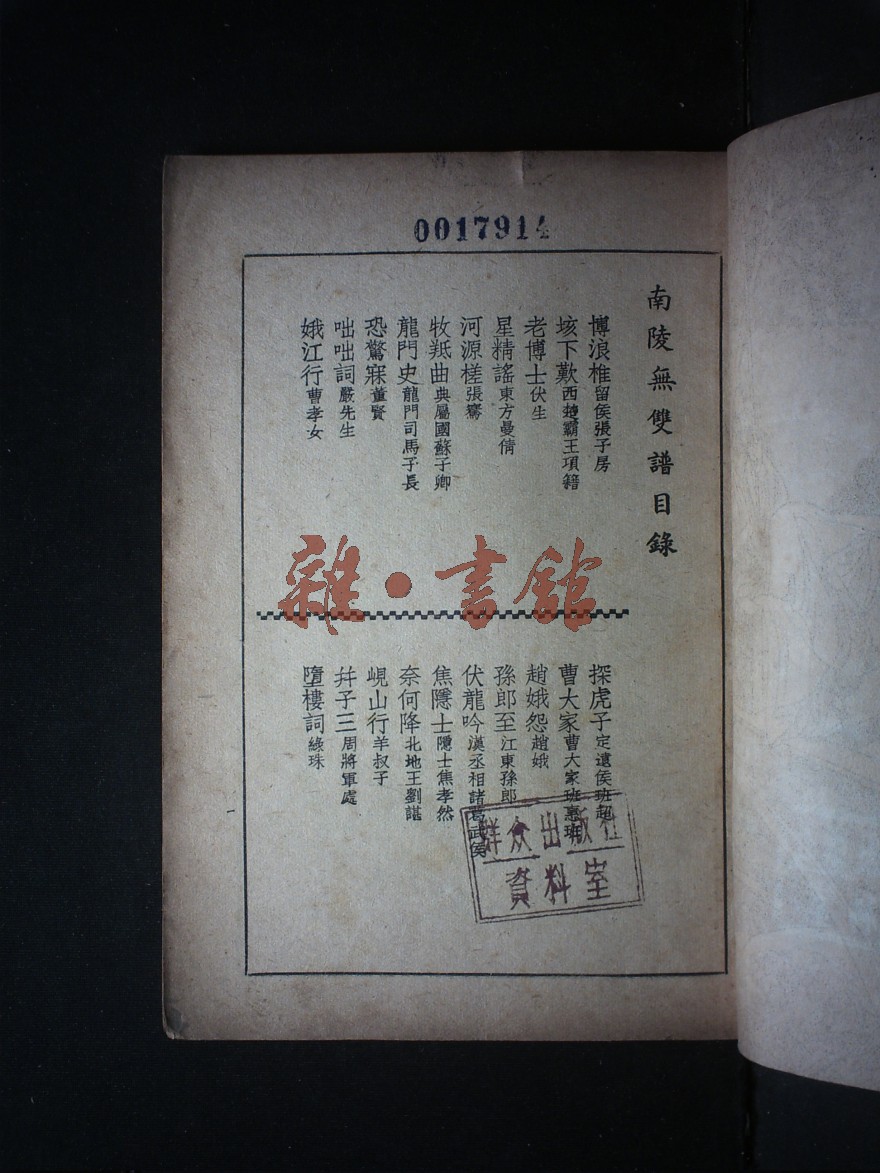 0017914
南陵無雙譜目錄
博浪椎留侯張子房
垓下歎西楚霸王項籍
老博士伏生
星精謠東方曼倩
河源槎張騫
牧羝曲典屬國蘇子卿
龍門史龍門司馬子長
恐驚寐董賢
咄咄詞嚴先生
娥江行曹孝女
雜·書館
探虎子定遠侯班超
曹大家曹大家班惠班
趙娥怨趙娥
孫郎至江東孫郎
伏龍吟漢丞相諸葛武侯
焦隱士隱士焦孝然
奈何降北地王劉諶
峴山行羊叔子
幷子三周將軍處
墮樓詞綠珠
群众出版社
資料室